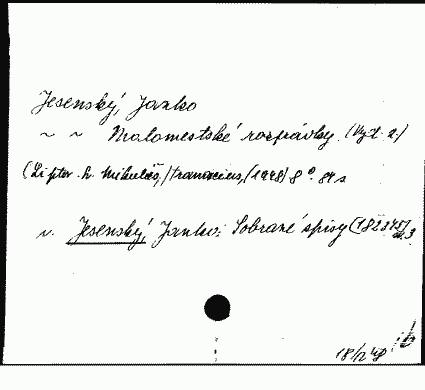 Jesenský, Janko
~ ~ Malomestské rozprávky. (Vyd. 2.)
(Liptov. Sv. Mikuláš,) Tranoscius, (1948) 8° 84 s.
v. Jesenský, Janko: Sobrané spisy (182345) 3
18/12 48